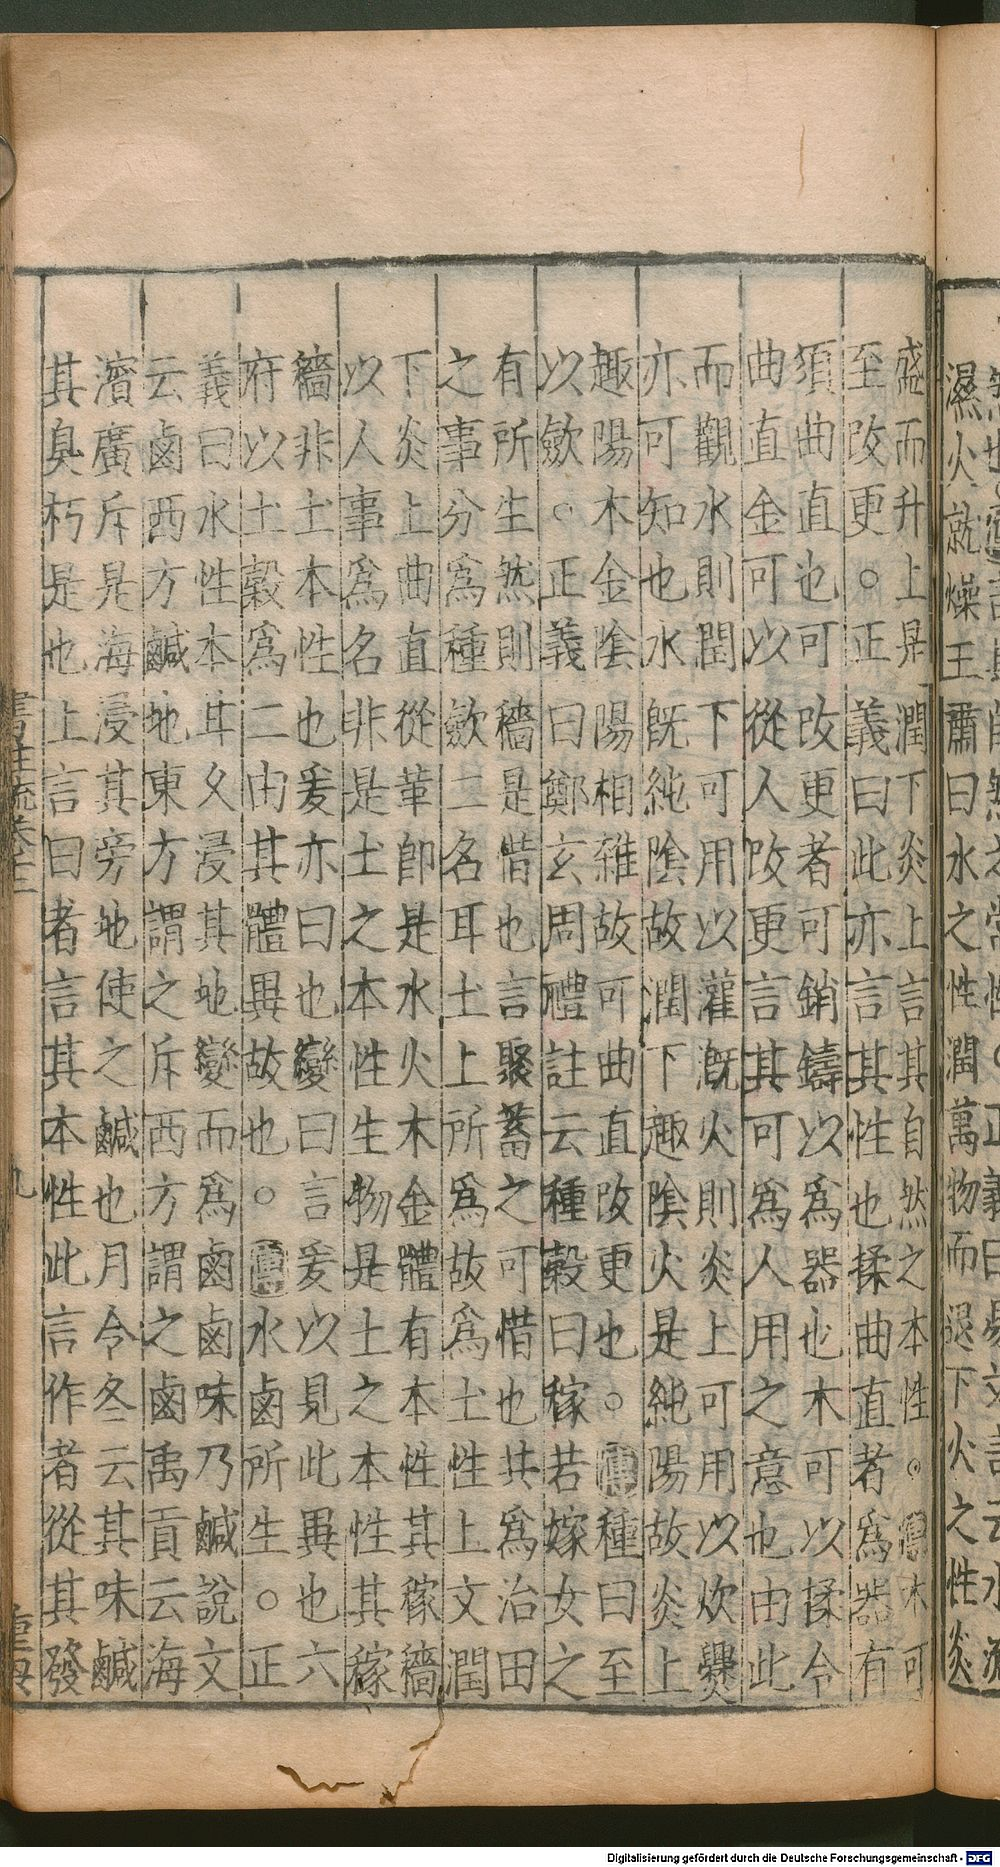 濕火就燥王肅曰水之性潤萬物而退下火之性炎
盛而升上是潤下炎上言其自然之本性○傳木可
至改更○正義曰此亦言其性也揉曲直者爲器有
須曲直也可改更者可銷鑄以爲器也木可以揉令
曲直金可以從人改更言其可爲人用之意也由此
而觀水則潤下可用以灌溉火則炎上可用以炊爨
亦可知也水旣純陰故潤下趣陰火是純陽故炎上
趣陽木金陰陽相雜故可曲直改更也○傳種曰至
以斂○正義曰鄭玄周禮註云種穀曰稼若嫁女之
有所生然則穡是惜也言聚蓄之可惜也共爲治田
之事分爲種斂二名耳土上所爲故爲土性上文潤
下炎上曲直從革卽是水火木金體有本性其稼穡
以人事爲名非是土之本性生物是土之本性其稼
穡非土本性也爰亦曰也變曰言爰以見此異也六
府以土穀爲二由其體異故也○傳水鹵所生○正
義曰水性本耳久浸其地變而爲鹵鹵味乃鹹說文
云鹵西方鹹地東方謂之斥西方謂之鹵禹貢云海
濱廣斥是海浸其旁地使之鹹也月令冬云其味鹹
其臭朽是也上言曰者言其本性此言作者從其發
書註疏卷十二
九